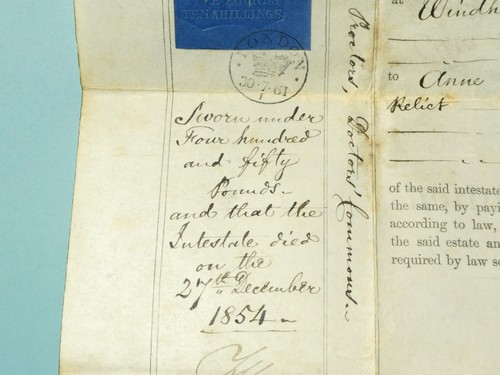 FIVE POUNDS
TEN SHILLINGS.
LONDON
30·7·61
1
Sworn under
Four hundred
and fifty
Pounds.
and that the
Intestate died
on the
27th December
1854
Proctors, Doctors' Commons.
at Windh
to Anne
Relict
of the said intestate
the same, by payi
according to law,
the said estate an
required by law so